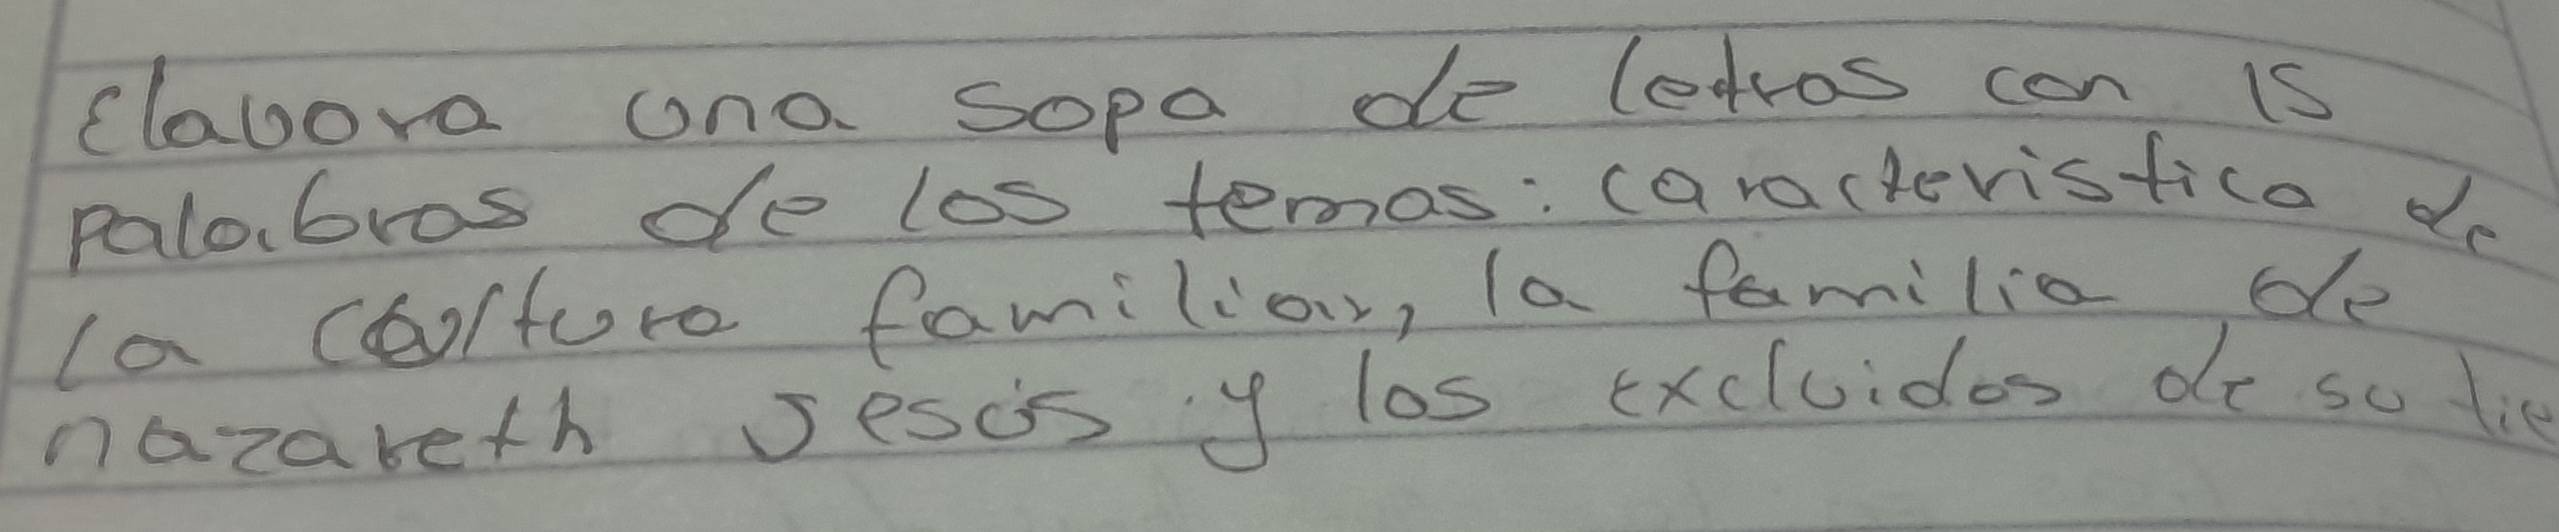 Elavora una sopa de letras con 15
palabras de los temas: caracteristica de
la cultura familiar, la familia de
nazareth Jesús y los excluidos de su tie